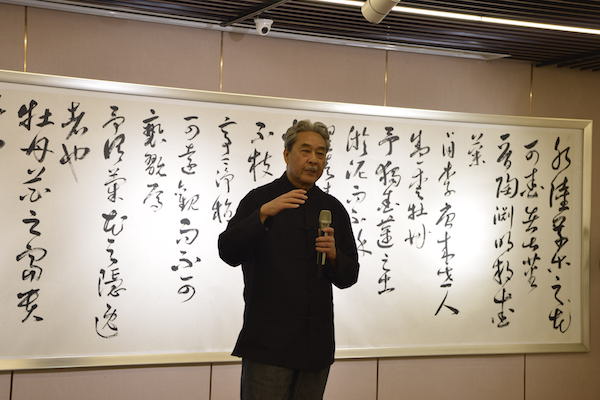 水陸草木之花
可愛者甚蕃
晉陶淵明獨愛
菊
自李唐来世人
甚愛牡丹
予獨愛蓮之出
淤泥而不染
不枝
亭亭淨植
可遠觀而不可
褻翫焉
予謂菊花之隱逸
者也
牡丹花之富貴